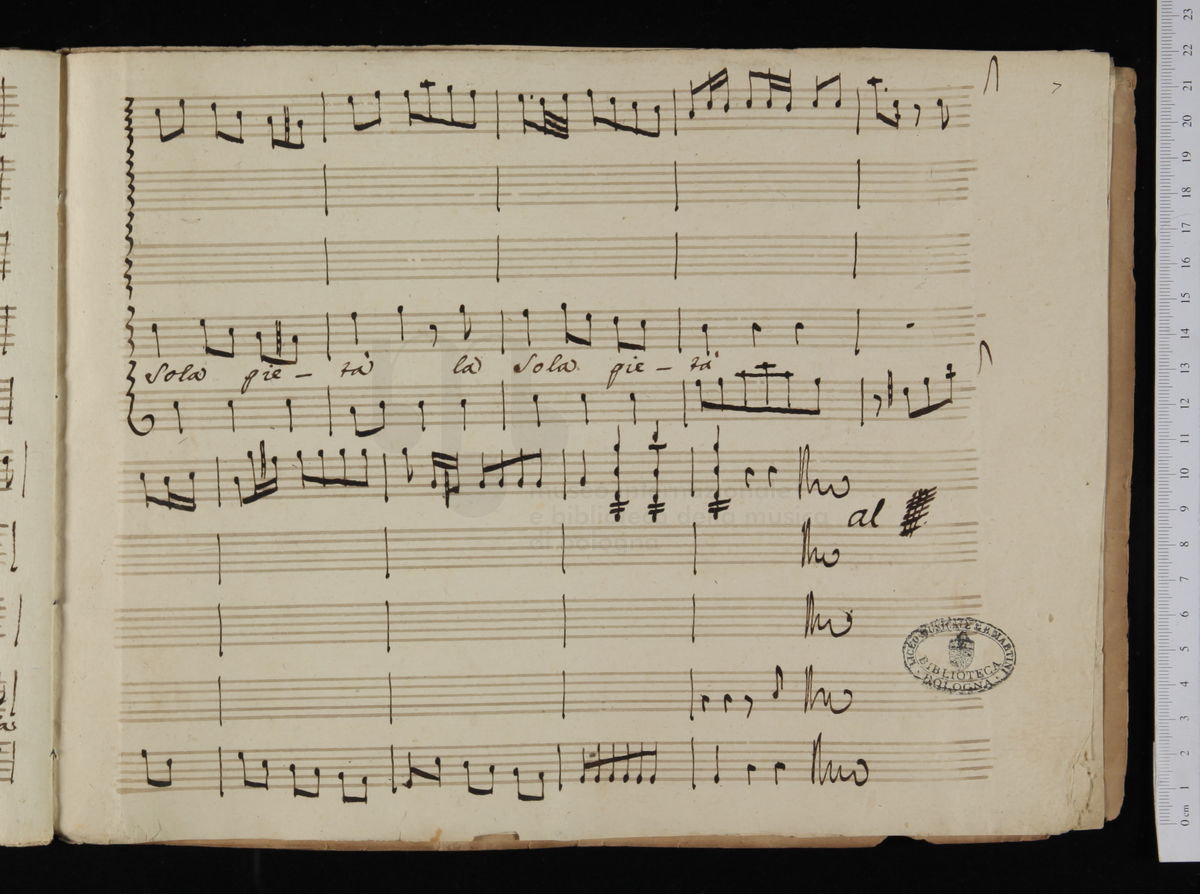 Sola pie - tà la Sola pie - tà
al
museo internazionale
e biblioteca della musica
di bologna
LICEO MUSICALE G.B. MARTINI
BIBLIOTECA
BOLOGNA
23
22
21
20
19
18
17
16
15
14
13
12
11
10
9
8
7
6
5
4
3
2
1
0 cm